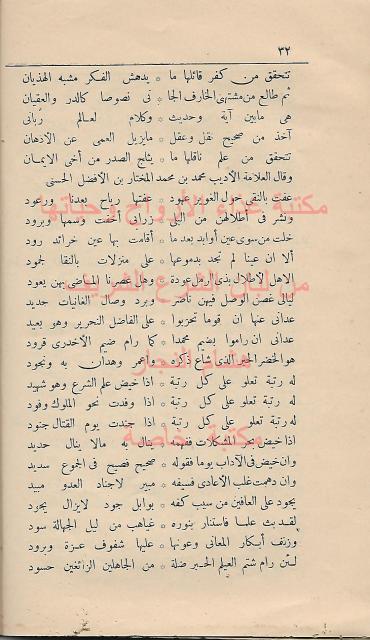 ٣٢
تتحقق من كفر قائلها ما * يدهش الفكر مشبه الهذيان
ثم طالع من مشتهى الخارف الجا * نى نصوصا كالدر والعقيان
هى مابين آية وحديث * وكلام لعالم ربانى
آخذ من صحيح نقل وعقل * مايزيل العمى عن الاذهان
تتحقق من علم ناقلها ما * يثلج الصدر من أخى الايمان
وقال العلامة الأديب محمد بن محمد المختار بن الافضل الحسنى
عفت بالنقى حول الغوير عهود * عفتها رياح بعدنا ورعود
ونشر فى اطلالهن من البلى * زرابى ألحقت وسمها وبرود
خلت من سوى عين أوابد بعد ما * أقامت بها عين خرائد رود
ألا ان عينا لم تجد بدموعها * على منزلات بالنقا لجمود
الاهل لاطلال بذى الرمل عودة * وهل عصرنا الماضى بهن يعود
ليالى غصن الوصل فيهن ناضر * وبرد وصال الغانيات جديد
عدانى عنها ان قوما تحزبوا * على الفاضل النحرير وهو بعيد
عدانى ان راموا بضيم محمدا * كما رام ضيم الاخدرى قرود
هو الخضر الحبر الذى شاع ذكره * وأعمر وهدان به ونجود
له رتبة تعلو على كل رتبة * اذا خيض علم الشرع وهو شهيد
له رتبة تعلو على كل رتبة * اذا وفدت نحو الملوك وفود
له رتبة تعلو على كل رتبة * اذا جندت يوم القتال جنود
اذا خيض بحر المشكلات ففهمه * ينال به مالا ينال حديد
وان خيض فى الآداب يوما فقوله * صحيح فصيح فى الجموع سديد
وان دهمت غلب الاعادى فسيفه * مبير لاجناد العدو مبيد
يجود على العافين من سيب كفه * بوابل جود لايزال يجود
لقد بث علما فاستنار بنوره * غياهب من ليل الجهالة سود
وزفت أبكار المعانى وعونها * عليها شفوف عزة وبرود
لئن رام شتم العيلم الحبر ضلة * من الجاهلين الزائغين حسود
مكتبة
مكتبة خاصة